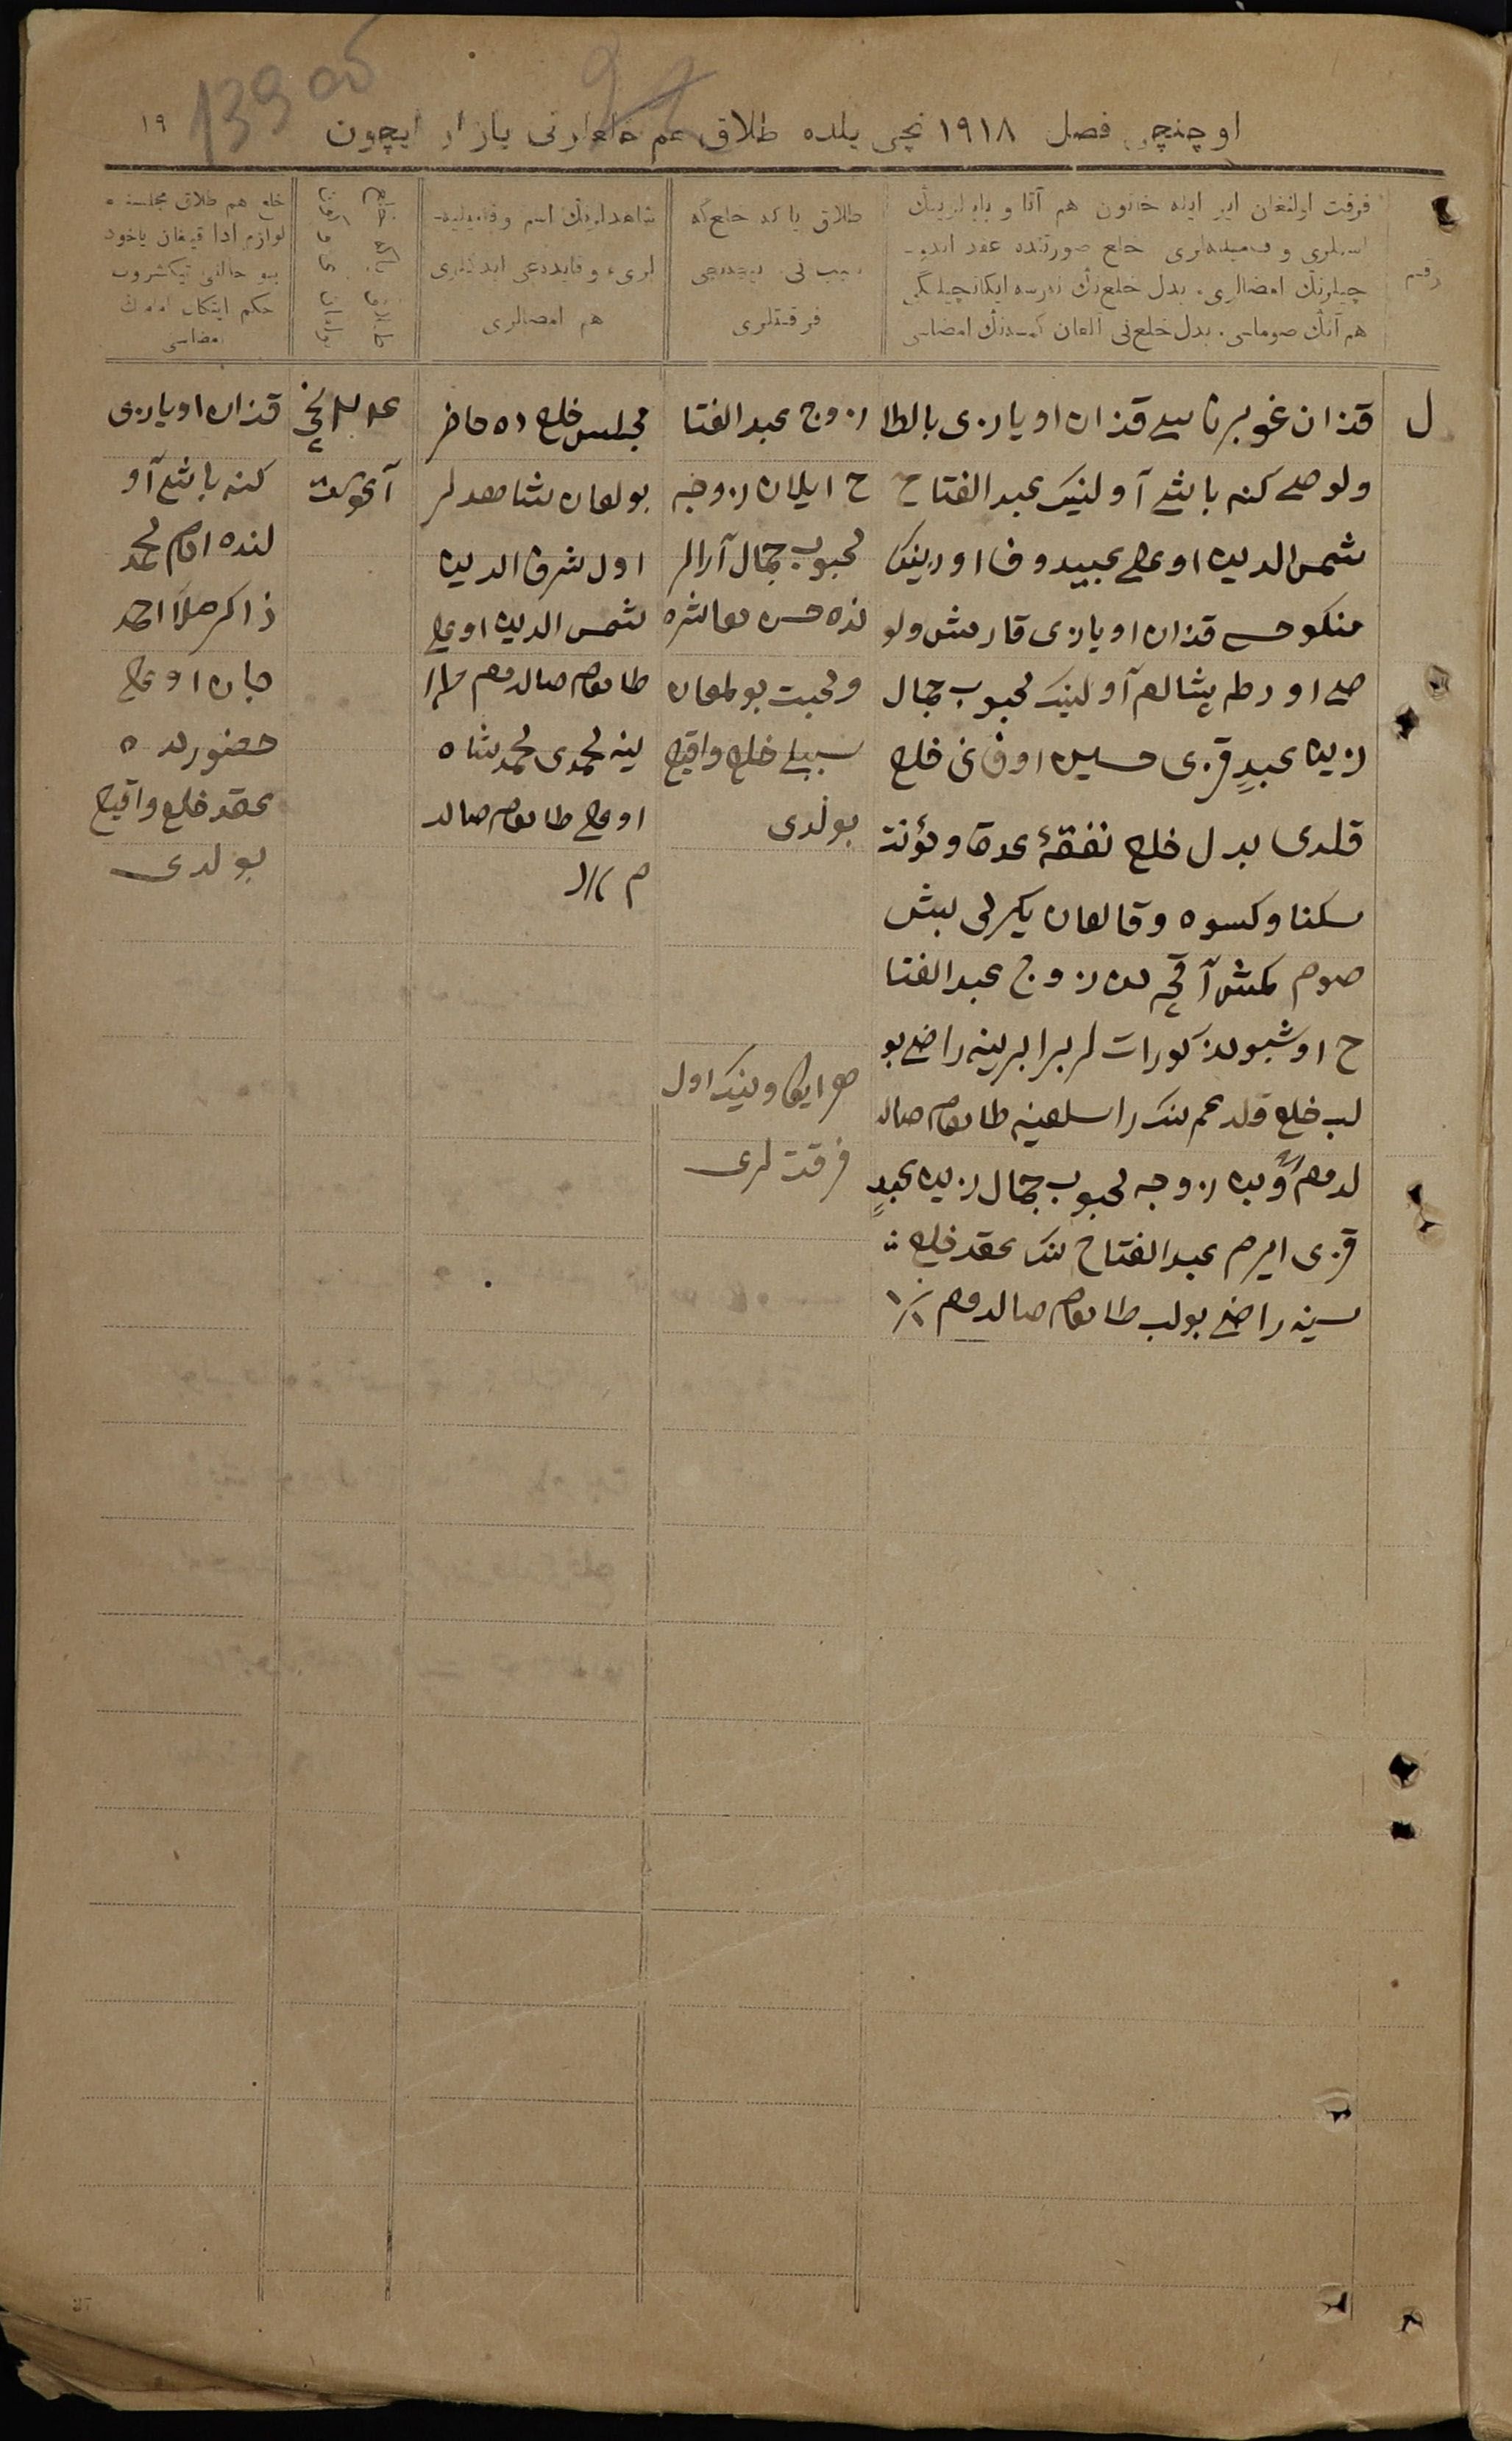 13900
92
اوچنچی فصل ١٩١٨ نچی يلده طلاق هم خلعلرنی يازار ايچون
١٩
رقم
فرقت اولنغان اير ايله خاتون هم آتا و بابالرينڭ
اسملری و فاميليه‌لری خلع صورتنده عقد ايدو-
چيلرنڭ امضالری. بدل خلع‌نڭ نرسه ايكانچيلگی
هم آنڭ صوماسی. بدل خلع‌نی آلغان كمسه‌نڭ امضاسی
طلاق ياكه خلع‌گه
سبب نی. نيچه‌نچی
فرقتلری
شاهدلرينڭ اسم و فاميليه-
لری
هم امضالری
خلع هم طلاق مجلسنده
لوازم ادا قيلغان ياخود
بو حالنی تيكشروب
حكم ايتكان امام‌نڭ
امضاسی
قزان غوبرناسی قزان اويازی بالطا
ولوصی كنه باشی آولينيڭ عبد الفتاح
شمس الدين اوغلی عبيدوف اورينيڭ
منكوحسی قزان اويازی قارمش ولو
صی اورطه پشالم آولينيڭ محبوب جمال
زين عبد قزی حسين اوف نی خلع
قلدی بدل خلع نفقهٔ عدة و مؤنت
سكنا و كسوه و قالغان يكرمی بيش
صوم كمش آقچه دن زوج عبد الفتا
ح اوشبو مذكورات لر برابرينه راضی بو
لب خلع قلدم نڭ راسلغينه طامغام صالـ
لدم من زوجه محبوب جمال زين عبد
قزی ايرم عبد الفتاح نڭ عقد خلع
سينه راضی بولب طامغام صالدم
زوج عبد الفتا
ح ايلان زوجه
محبوب جمال آرالر
نده حسن معاشره
و محبت بولمغان
سببلی خلع واقع
بولدی
هر ايكاوينيڭ اول
فرقت لری
مجلس خلع ده حاضر
بولغان شاهدلر
اول شرف الدين
شمس الدين اوغلی
طامغام صالدم
ينه محمدی محمد شاه
اوغلی طامغام صالد
م
قزان اويازی
كنه باشی آو
لنده امام محمد
ذاكر ملا احمد
جان اوغلی
حضورنده
عقد خلع واقع
بولدی